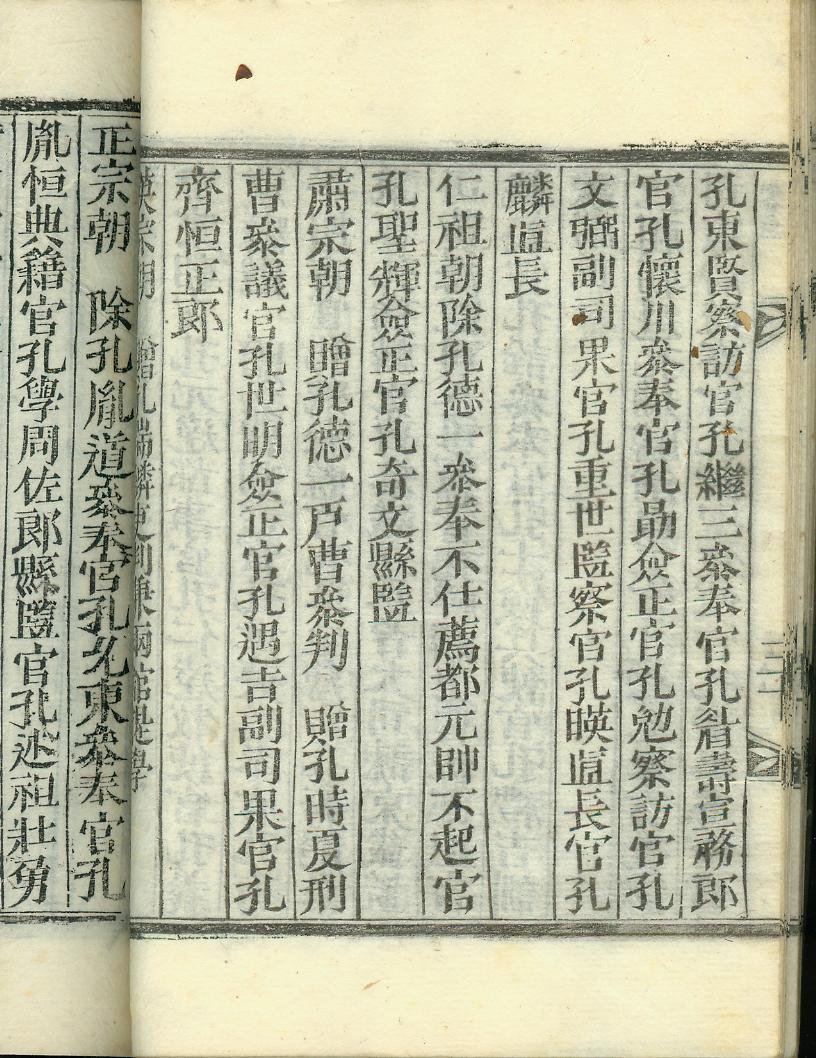 孔東賢察訪官孔繼三叅奉官孔耉壽宣務郎
官孔懷川叅奉官孔勗僉正官孔勉察訪官孔
文弼副司果官孔重世監察官孔暎直長官孔
麟直長
仁祖朝除孔德一叅奉不仕薦都元帥不起官
孔聖輝僉正官孔奇文縣監
肅宗朝 贈孔德一戶曹叅判 贈孔時夏刑
曹叅議官孔世明僉正官孔遇吉副司果官孔
齊恒正郎
英宗朝 贈孔瑞麟吏判兼兩館提學
正宗朝 除孔胤道叅奉官孔允東叅奉官孔
胤恒典籍官孔學周佐郎縣監官孔述祖壯勇